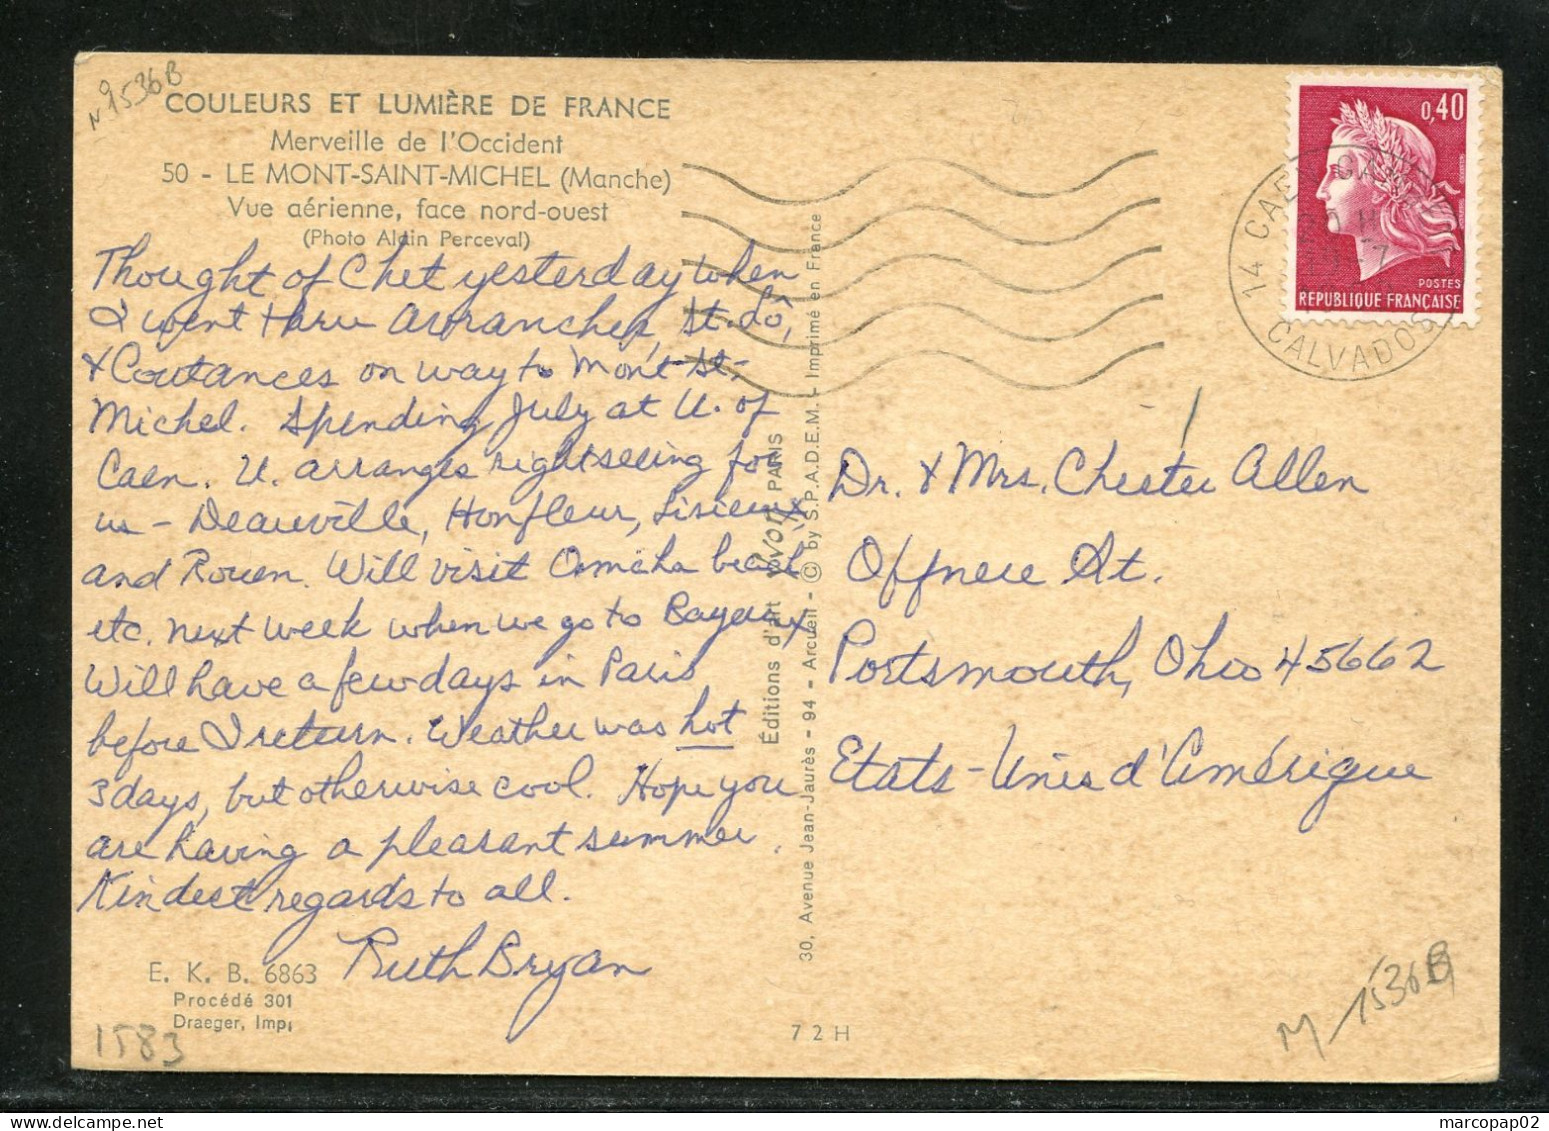 N°1536B
COULEURS ET LUMIÈRE DE FRANCE
Merveille de l'Occident
50 - LE MONT-SAINT-MICHEL (Manche)
Vue aérienne, face nord-ouest
(Photo Alain Perceval)
Thought of Chet yesterday when
I went thru Avranches, St. Lô,
& Coutances on way to Mont-St-
Michel. Spending July at U. of
Caen. U. arranges sightseeing for
us - Deauville, Honfleur, Lisieux
and Rouen. Will visit Omaha beach
etc. next week when we go to Bayeux
Will have a few days in Paris
before I return. Weather was hot
3 days, but otherwise cool. Hope you
are having a pleasant summer.
Kindest regards to all.
Ruth Bryan
E. K. B. 6863
Procédé 301
Draeger, Imp.
1583
Éditions d'art YVON PARIS
30, Avenue Jean-Jaurès - 94 - Arcueil - © by S.P.A.D.E.M. - Imprimé en France
72H
0,40
POSTES
REPUBLIQUE FRANÇAISE
14 CAEN
CALVADOS
Dr. & Mrs. Chester Allen
Offnere St.
Portsmouth, Ohio 45662
Etats-Unis d'Amérique
M-1536B
marcopap02